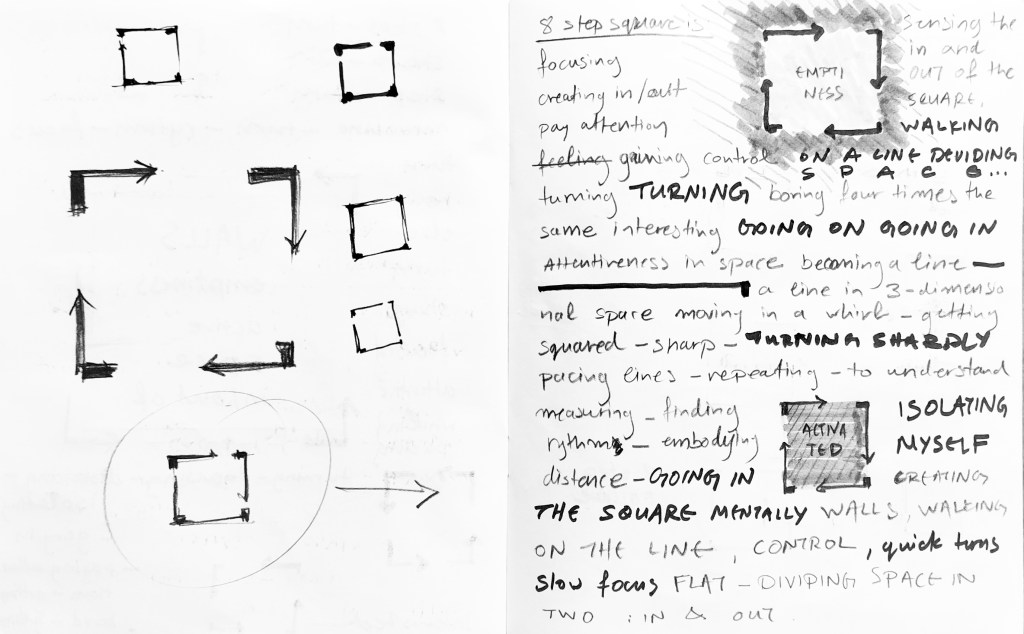 8 step square is
focusing
creating in/out
pay attention
feeling gaining control
EMPTI
NESS
sensing the
in and
out of the
SQUARE,
WALKING
ON A LINE DEVIDING
SPACE...
turning TURNING boring four times the
same interesting GOING ON GOING IN
Attentiveness in space becoming a line —
a line in 3-dimensio
nal space moving in a whirl - getting
squared - sharp - TURNING SHARPLY
pacing lines - repeating - to understand
measuring - finding
rythms - embodying
distance - GOING IN
ACTIVA
TED
ISOLATING
MYSELF
CREATING
THE SQUARE MENTALLY WALLS, WALKING
ON THE LINE, CONTROL, quick turns
slow focus FLAT - DIVIDING SPACE IN
TWO : IN & OUT